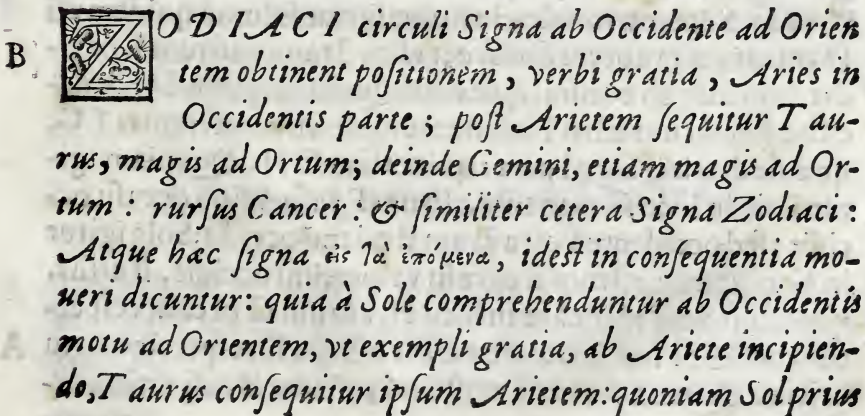 B ZODIACI circuli Signa ab Occidente ad Orien
tem obtinent poſitionem, verbi gratia, Aries in
Occidentis parte; poſt Arietem ſequitur Tau-
rus, magis ad Ortum; deinde Gemini, etiam magis ad Or-
tum: rurſus Cancer: & ſimiliter cetera Signa Zodiaci:
Atque hæc ſigna εἰς τὰ ἑπόμενα, ideſt in conſequentia mo-
ueri dicuntur: quia à Sole comprehenduntur ab Occidentis
motu ad Orientem, vt exempli gratia, ab Ariete incipien-
do, Taurus conſequitur ipſum Arietem: quoniam Sol prius